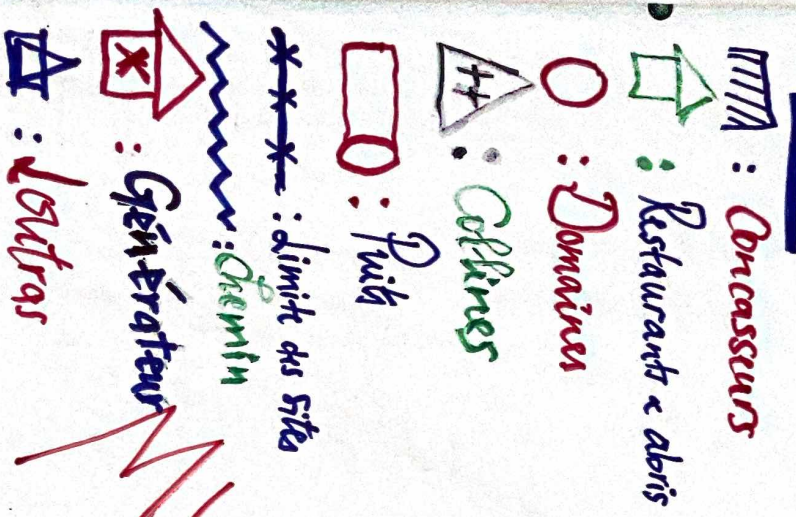 : Concasseurs
: Restaurants & abris
: Domaines
: Collines
: Puits
: Limite des sites
: Chemin
: Générateur
: Loutras